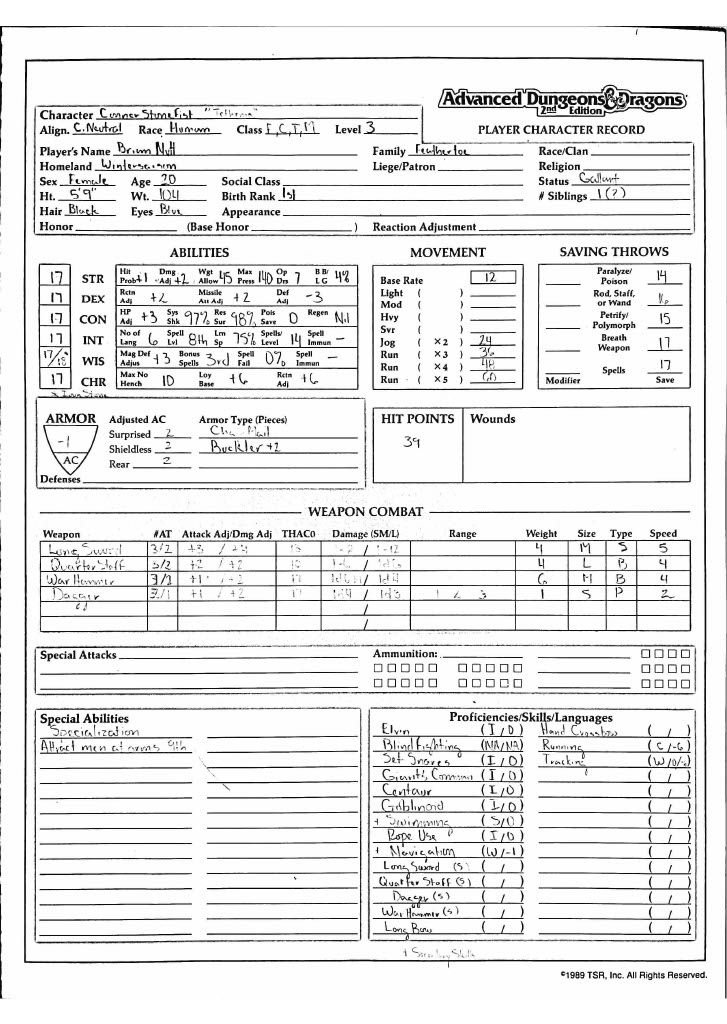 Advanced Dungeons & Dragons
2nd Edition
Character Conner Stonefist
Align. C. Neutral Race Human Class F, C, T, M Level 3
PLAYER CHARACTER RECORD
Player's Name Brian Nutt Family Featherloe Race/Clan
Homeland Liege/Patron Religion
Sex Female Age 20 Social Class Status Gallant
Ht. 5'9" Wt. 104 Birth Rank 1st # Siblings 1(?)
Hair Black Eyes Blue Appearance
Honor (Base Honor ) Reaction Adjustment
ABILITIES
17 STR Hit Prob +1 Dmg Adj +2 Wgt Allow 45 Max Press 140 Op Drs 7 BB/LG 4%
17 DEX Rctn Adj +2 Missile Att Adj +2 Def Adj -3
17 CON HP Adj +3 Sys Shk 97% Res Sur 98% Pois Save 0 Regen Nil
17 INT No of Lang 6 Spell Lvl 8th Lrn Sp 75% Spells/Level 14 Spell Immun -
17/18 WIS Mag Def Adjus +3 Bonus Spells 3rd Spell Fail 0% Spell Immun -
17 CHR Max No Hench 10 Loy Base +6 Rctn Adj +6
MOVEMENT
Base Rate 12
Light ( )
Mod ( )
Hvy ( )
Svr ( )
Jog (×2) 24
Run (×3) 36
Run (×4) 48
Run (×5) 60
SAVING THROWS
Paralyze/Poison 14
Rod, Staff, or Wand 16
Petrify/Polymorph 15
Breath Weapon 17
Spells 17
Modifier Save
ARMOR Adjusted AC Armor Type (Pieces)
-1 AC
Surprised 2 Mail
Shieldless 2 Buckler +2
Rear 2
Defenses
HIT POINTS Wounds
39
WEAPON COMBAT
Weapon #AT Attack Adj/Dmg Adj THAC0 Damage (SM/L) Range Weight Size Type Speed
Long Sword 3/2 +3 / / 1-12 4 M S 5
Quarter Staff 3/2 +2 / +2 / 1d6 4 L B 4
War Hammer 3/1 +1 / +2 17 1d6+1 / 1d4 6 M B 4
Dagger 3/1 +1 / +2 17 1d4 / 1d3 1 2 3 1 S P 2
/
/
Special Attacks Ammunition:
Special Abilities
Specialization
Attract men at arms 9th
Proficiencies/Skills/Languages
Elvin (I/0) Hand Crossbow ( / )
Blind fighting (NA/NA) Running (C/-6)
Set Snares (I/0) Tracking
Giants Common (I/0) ( / )
Centaur (I/0) ( / )
Goblinoid (I/0) ( / )
+ Swimming (S/0) ( / )
Rope Use (I/0) ( / )
+ Navigation (W/-1) ( / )
Long Sword (s) ( / ) ( / )
Quarter Staff (s) ( / ) ( / )
Dagger (s) ( / ) ( / )
War Hammer (s) ( / ) ( / )
Long Bow ( / ) ( / )
+ Secondary Skills
©1989 TSR, Inc. All Rights Reserved.